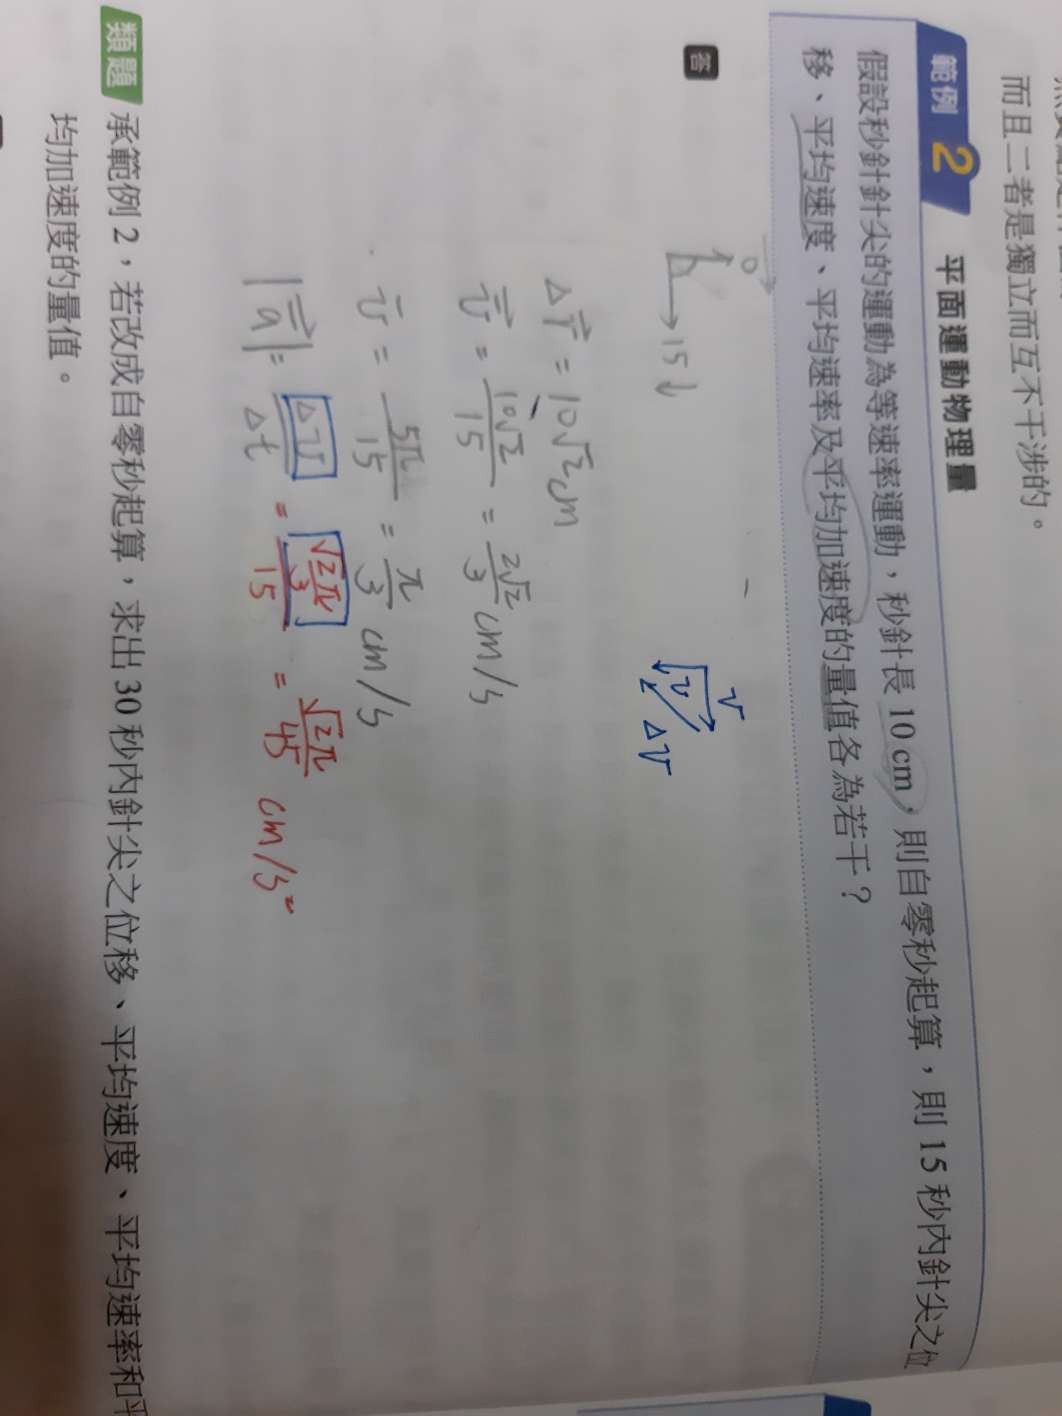 而且二者是獨立而互不干涉的。
範例 2 平面運動物理量
假設秒針針尖的運動為等速率運動，秒針長 10 cm，則自零秒起算，則 15 秒內針尖之位
移、平均速度、平均速率及平均加速度的量值各為若干？
答
0
15
v
v
Δv
Δr = 10√2 cm
v = 10√2/15 = 2√2/3 cm/s
v = 5π/15 = π/3 cm/s
|a| = Δv/Δt = (√2π/3)/15 = √2π/45 cm/s²
類題 承範例 2，若改成自零秒起算，求出 30 秒內針尖之位移、平均速度、平均速率和平
均加速度的量值。